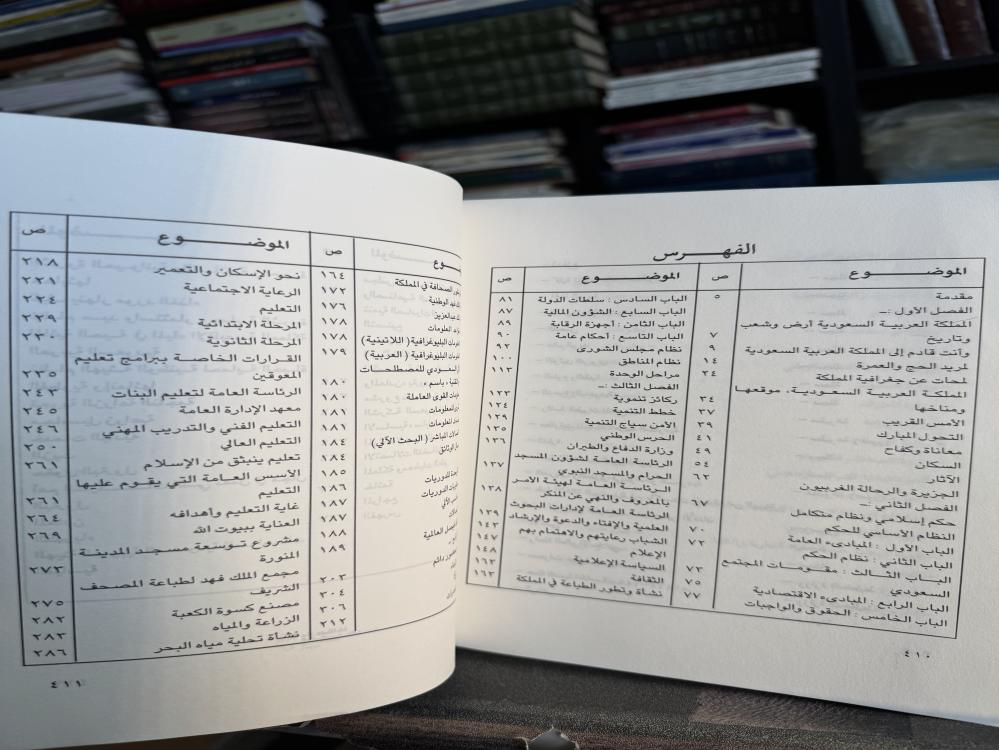 الفهرس
الموضوع
ص
مقدمة
٥
الفصل الأول :ـ
المملكة العربية السعودية أرض وشعب
وتاريخ
٧
وأنت قادم إلى المملكة العربية السعودية
لمريد الحج والعمرة
١٤
لمحات عن جغرافية المملكة
٢٤
المملكة العربية السعودية. موقعها
ومناخها
٣٤
الأمس القريب
٣٧
التحول المبارك
٣٩
معاناة وكفاح
٤١
السكان
٤٩
الآثار
٥٤
الجزيرة والرحالة الغربيون
٦٢
الفصل الثاني :ـ
حكم إسلامي ونظام متكامل
٦٧
النظام الأساسي للحكم
٧٠
الباب الأول : المبادىء العامة
٧٢
الباب الثاني : نظام الحكم
الباب الثالث : مقومات المجتمع
السعودي
٧٣
الباب الرابع : المبادىء الاقتصادية
٧٥
الباب الخامس : الحقوق والواجبات
٧٧
الموضوع
ص
الباب السادس : سلطات الدولة
٨١
الباب السابع : الشؤون المالية
٨٧
الباب الثامن : أجهزة الرقابة
٨٩
الباب التاسع : أحكام عامة
٩٢
نظام مجلس الشورى
٩٣
نظام المناطق
١٠٠
مراحل الوحدة
١١٣
الفصل الثالث :ـ
ركائز تنموية
١٢٣
خطط التنمية
١٢٤
الأمن سياج التنمية
١٢٩
الحرس الوطني
١٣٥
وزارة الدفاع والطيران
١٣٦
الرئاسة العامة لشؤون المسجد
الحرام والمسجد النبوي
١٣٧
الرئاسة العامة لهيئة الأمر
بالمعروف والنهي عن المنكر
١٣٨
الرئاسة العامة لإدارات البحوث
العلمية والإفتاء والدعوة والإرشاد
١٣٩
الشباب رعايتهم والاهتمام بهم
١٤٣
الإعلام
١٤٧
السياسة الإعلامية
١٤٨
الثقافة
١٦٣
نشأة وتطور الطباعة في المملكة
١٦٣
٤١٠
ص
الصحافة في المملكة
١٦٤
الوطنية
١٧٢
١٧٦
المعلومات
١٧٨
البليوغرافية ( اللاتينية )
١٧٨
البليوغرافية ( العربية )
١٧٩
السعودي للمصطلحات
باسم ،
١٨٠
القوى العاملة
١٨٠
١٨١
١٨١
المباشر ( البحث الآلي )
١٨٤
١٨٤
١٨٥
الدوريات
١٨٦
الدوريات
١٨٧
١٨٧
١٨٨
العالمية
١٨٩
دائم
٢٠٣
٢٠٤
٢٠٦
٢١٢
الموضوع
ص
نحو الإسكان والتعمير
٢١٨
الرعاية الاجتماعية
٢٢١
التعليم
٢٢٤
المرحلة الابتدائية
٢٢٩
المرحلة الثانوية
٢٣٠
القرارات الخاصة ببرامج تعليم
المعوقين
٢٣٥
الرئاسة العامة لتعليم البنات
٢٤٣
معهد الإدارة العامة
٢٤٥
التعليم الفني والتدريب المهني
٢٤٦
التعليم العالي
٢٥٠
تعليم ينبثق من الإسلام
٢٦١
الأسس العامة التي يقوم عليها
التعليم
٢٦١
غاية التعليم وأهدافه
٢٦٤
العناية ببيوت الله
٢٦٩
مشروع توسعة مسجد المدينة
المنورة
٢٧٣
مجمع الملك فهد لطباعة المصحف
الشريف
٢٧٥
مصنع كسوة الكعبة
٢٨٢
الزراعة والمياه
٢٨٣
نشأة تحلية مياه البحر
٢٨٦
٤١١